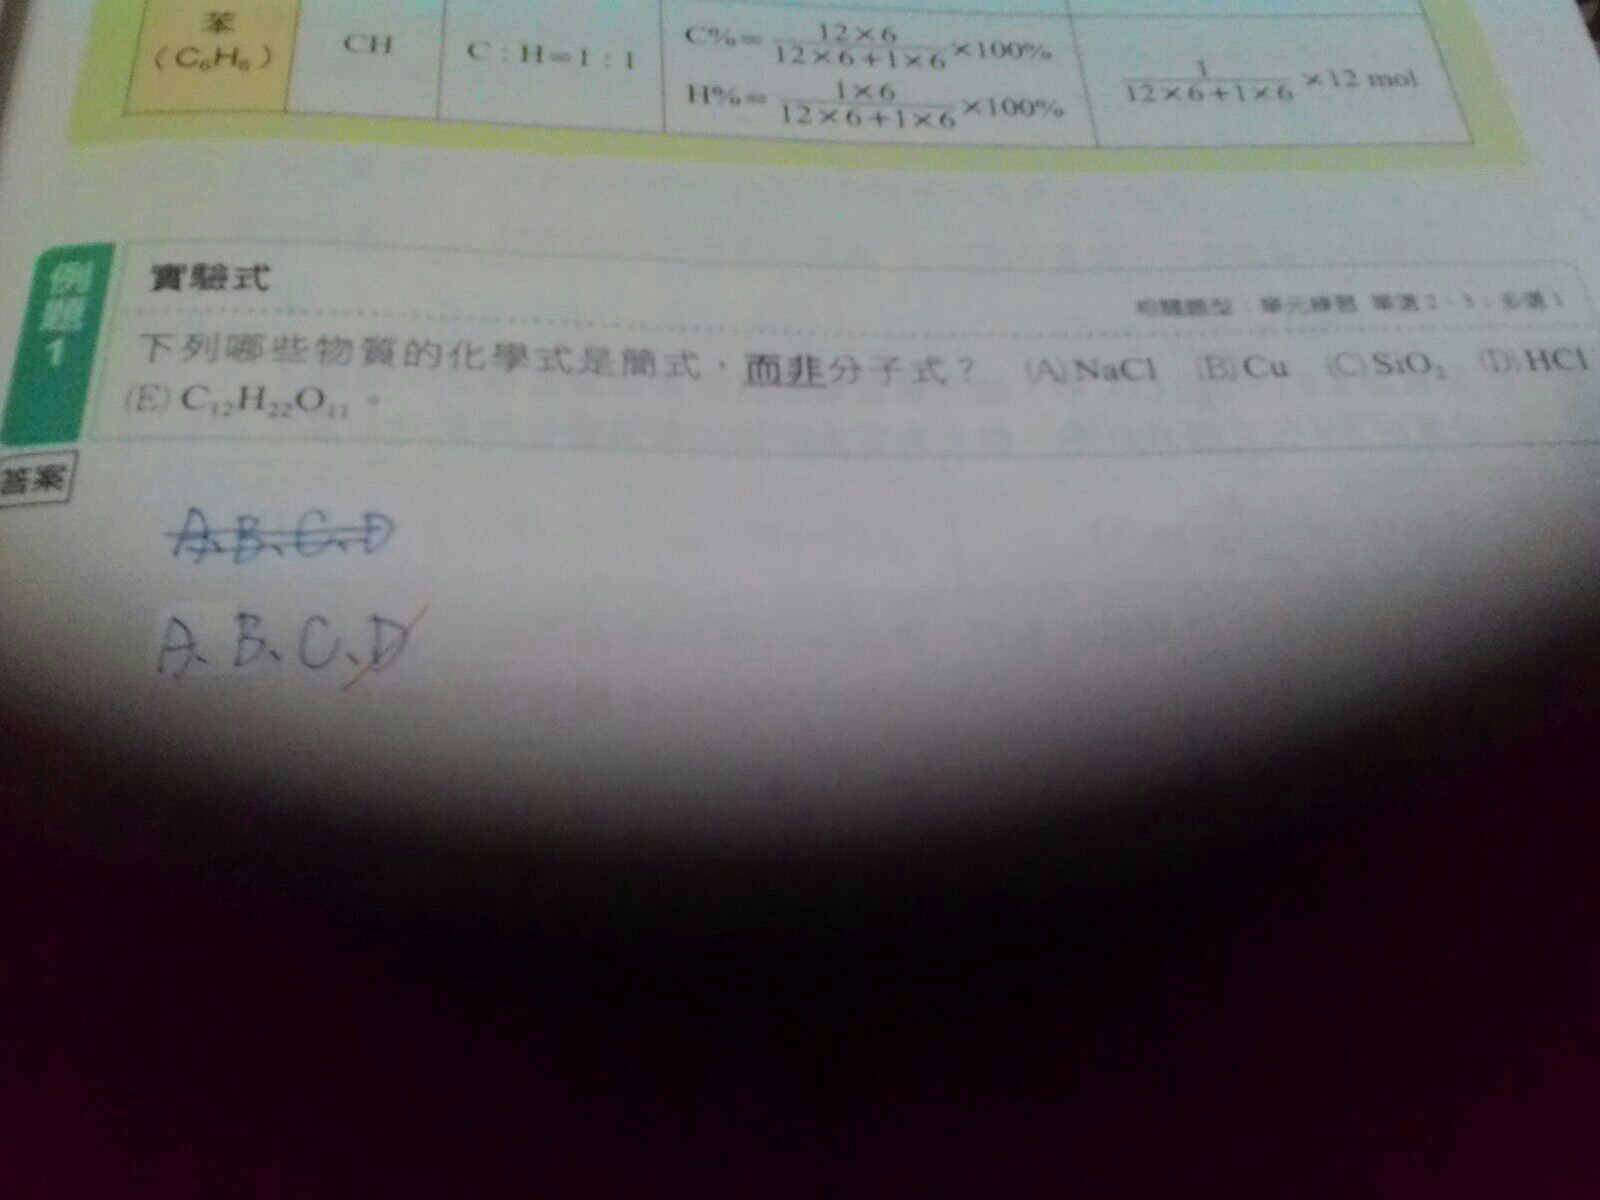 苯
(C₆H₆)
CH
C:H=1:1
C%= 12×6 / 12×6+1×6 ×100%
H%= 1×6 / 12×6+1×6 ×100%
1 / 12×6+1×6 ×12 mol
例題1
實驗式
相關題型:單元練習 單選2、3;多選1
下列哪些物質的化學式是簡式,而非分子式? (A)NaCl (B)Cu (C)SiO₂ (D)HCl
(E)C₁₂H₂₂O₁₁。
答案
A、B、C、D
A、B、C、D